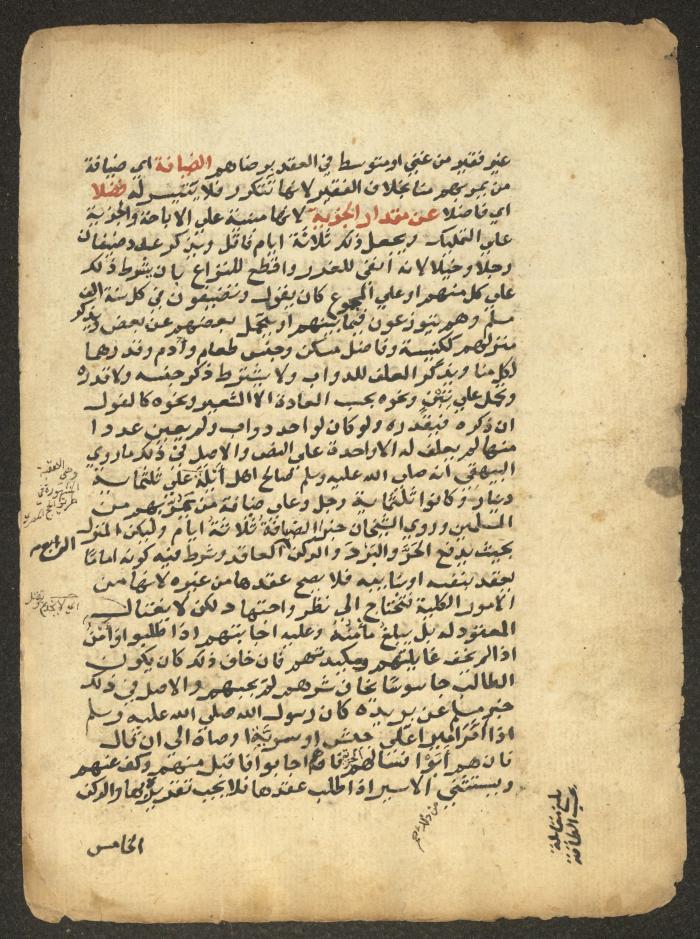 غير فقير من غني او متوسط في العقد برضاهم الضيافة اي ضيافة
من يمر بهم منا بخلاف الفقير لانها تتكرر فلا يتيسر له فضلا
اي فاضلا عن مقدار الجزية لانها مبنية علي الاباحة والجزية
علي التمليك ويجعل ذلك ثلاثة ايام فاقل ويذكر عدد ضيفان
رجلا وخيلا لانه انفي للغرر واقطع للنزاع بان يشرط ذلك
علي كل منهم او علي المجموع كان يقول وتضيفون في كل سنة الف
مسلم وهم يتوزعون فيما بينهم او يتحمل بعضهم عن بعض ويذكر
منزلهم ككنيسة وفاضل مسكن وجنس طعام وادم وقدرهما
لكل منا ويذكر العلف للدواب ولا يشترط ذكر جنسه ولا قدره
ويحمل علي تبن ونحوه بحسب العادة الا الشعير ونحوه كالفول
ان ذكره فيقدره ولو كان لواحد دواب ولم يعين عددا
منها لم يعلف له الا واحدة علي النص والاصل في ذلك ما روي
البيهقي انه صلي الله عليه وسلم صالح اهل ايلة علي ثلثماية
دينار وكانوا ثلثماية رجل وعلي ضيافة من يمر بهم من
المسلمين وروي الشيخان خبر الضيافة ثلاثة ايام وليكن المنزل
بحيث يدفع الحر والبرد والركن العاقد وشرط فيه كونه اماما
يعقد بنفسه او بنايبه فلا يصح عقدها من غيره لانها من
الامور الكلية فتحتاج الي نظر واجتهاد لكن لا يغتال
المعقود له بل يبلغ مامنه وعليه اجابتهم اذا طلبوا وامن
اذا لم يخف غايلتهم ومكيدتهم فان خاف ذلك كان يكون
الطالب جاسوسا يخاف شرهم لم يجبهم والاصل في ذلك
خبر مسلم عن بريدة كان رسول الله صلي الله عليه وسلم
اذا امر اميرا علي جيش او سرية اوصاه الي ان قال
فان هم ابوا فسالهم الجزية فان هم اجابوا فاقبل منهم وكف عنهم
ويستثني الاسير اذا طلب عقدها فلا يجب تقريره بها والركن
الخامس
وهي العقبة
المشهورة في
طريق الحج المصري
الرابع